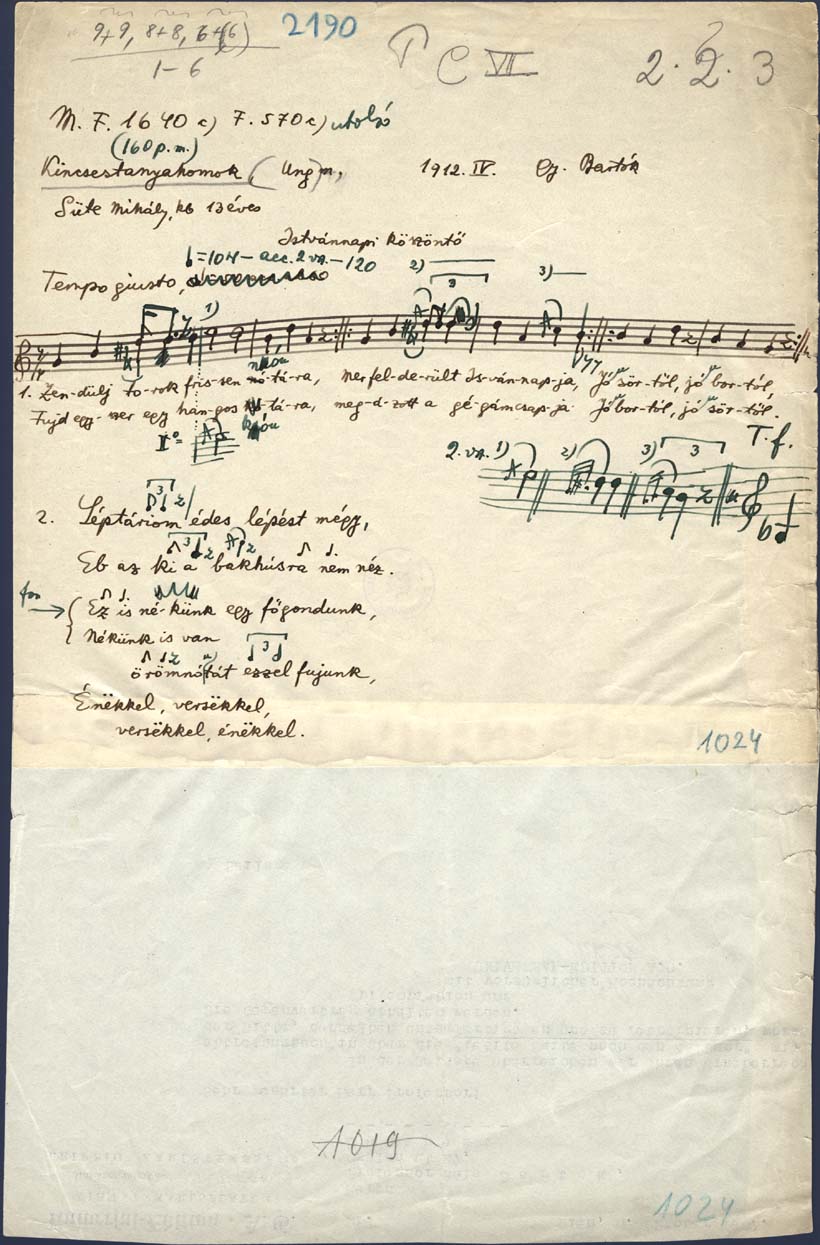 9+9, 8+8, 6+6
2190
1-6
C VII
2. 2. 3
M. F. 1640 c) F. 570 c) utolsó
(160 p. m.)
Kincsestanyahomok (Ung) m,
1912. IV. Gy. Bartók
Süte Mihály, kb 13 éves
Istvánnapi köszöntő
Tempo giusto, ♩=104 - acc. 2. va. - 120
1) 2) 3 3)
1. Zen-dülj to-rok fris-sen nó-tá-ra, Merfel-de-rült Is-ván-nap-ja, Jó sör-től, jó bor-tól,
Fujd egy-szer egy han-gos tá-ra, meg-d-zott a gé-gámcsap-ja Jó bor-tól, jó sör-től.
T. f.
I°=
2. va. 1) 2) 3) 3
2. Léptáriom édes lépést mégy,
Eb az ki a bakhúsra nem néz.
fon
Ez is né-künk egy főgondunk,
Nékünk is van
örömnótát ezzel fujunk,
Énëkkel, versëkkel,
versëkkel, énëkkel.
1024
1019
1024